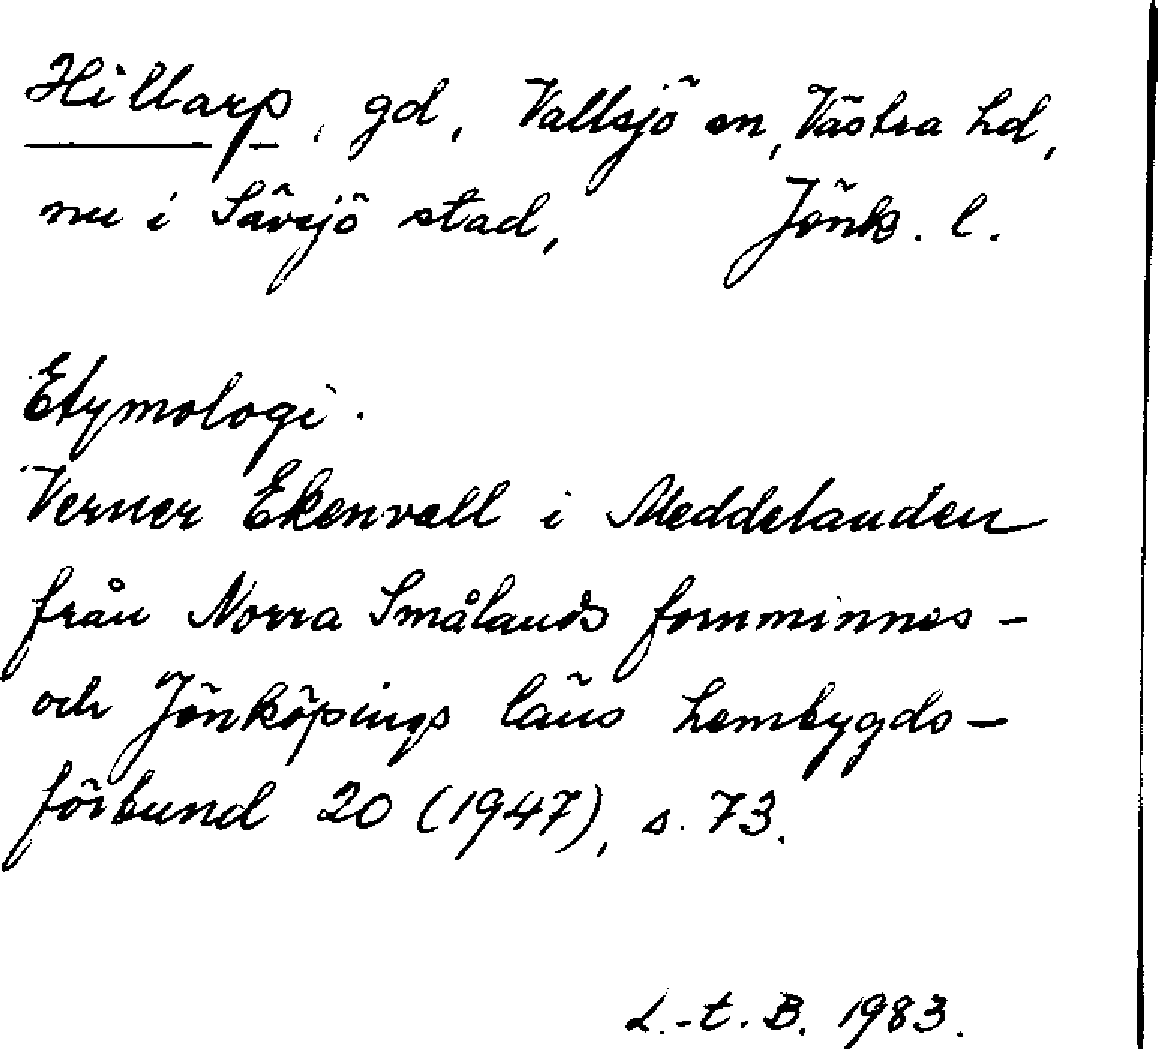 Hillarp, gd, Vallsjö sn, Västra hd,
nu i Sävsjö stad, Jönk. l.
Etymologi.
Verner Ekenvall i Meddelanden
från Norra Smålands fornminnes-
och Jönköpings läns hembygds-
förbund 20 (1947), s. 73.
L.-t. B. 1983.